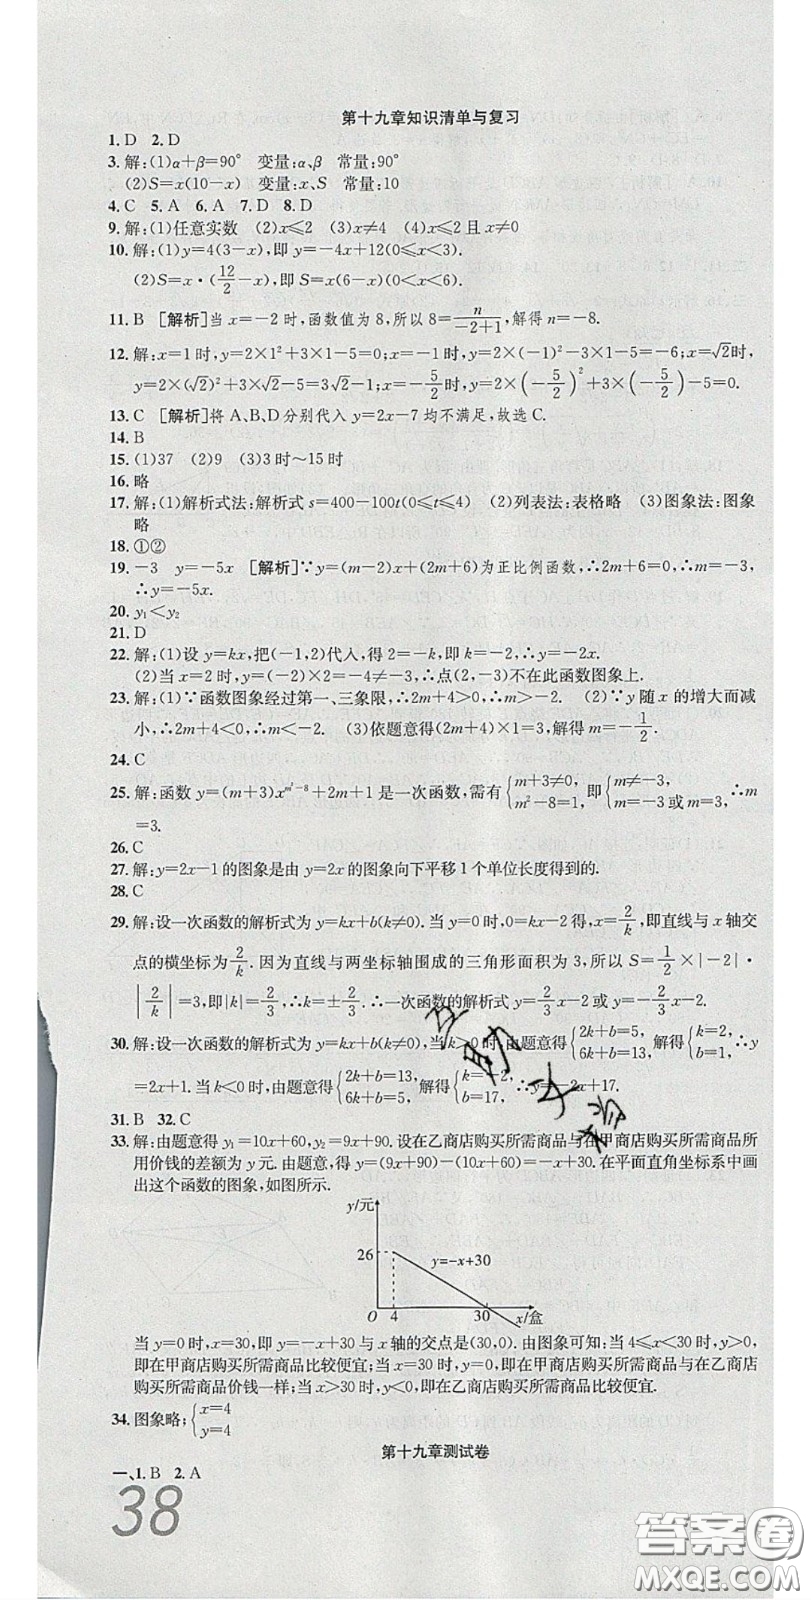 第十九章知识清单与复习
1. D 2. D
3. 解:(1)α+β=90° 变量:α、β 常量:90°
(2)S=x(10-x) 变量:x、S 常量:10
4. C 5. A 6. A 7. D 8. D
9. 解:(1)任意实数 (2)x⩽2 (3)x≠4 (4)x⩽2且x≠0
10. 解:(1)y=4(3-x),即y=-4x+12(0⩽x<3).
(2)S=x·(12/2-x),即S=x(6-x)(0<x<6).
11. B [解析]当x=-2时,函数值为8,所以8=n/(-2+1),解得n=-8.
12. 解:x=1时,y=2×1²+3×1-5=0;x=-1时,y=2×(-1)²-3×1-5=-6;x=√2时,
y=2×(√2)²+3×√2-5=3√2-1;x=-5/2时,y=2×(-5/2)²+3×(-5/2)-5=0.
13. C [解析]将A、B、D分别代入y=2x-7均不满足,故选C.
14. B
15. (1)37 (2)9 (3)3时~15时
16. 略
17. 解:(1)解析式法:解析式s=400-100t(0⩽t⩽4) (2)列表法:表格略 (3)图象法:图象
略
18. ①②
19. -3 y=-5x [解析]∵y=(m-2)x+(2m+6)为正比例函数,∴2m+6=0,∴m=-3,
∴y=-5x.
20. y₁<y₂
21. D
22. 解:(1)设y=kx,把(-1,2)代入,得2=-k,即k=-2,∴y=-2x.
(2)当x=2时,y=(-2)×2=-4≠-3,∴点(2,-3)不在此函数图象上.
23. 解:(1)∵函数图象经过第一、三象限,∴2m+4>0,∴m>-2. (2)∵y随x的增大而减
小,∴2m+4<0,∴m<-2. (3)依题意得(2m+4)×1=3,解得m=-1/2.
24. C
25. 解:函数y=(m+3)x^(m²-8)+2m+1是一次函数,需有{m+3≠0, m²-8=1,即{m≠-3, m=-3或m=3,∴m
=3.
26. C
27. 解:y=2x-1的图象是由y=2x的图象向下平移1个单位长度得到的.
28. C
29. 解:设一次函数的解析式为y=kx+b(k≠0).当y=0时,0=kx-2得,x=2/k,即直线与x轴交
点的横坐标为2/k.因为直线与两坐标轴围成的三角形面积为3,所以S=1/2×|-2|·
|2/k|=3,即|k|=2/3,∴k=±2/3.∴一次函数的解析式y=2/3x-2或y=-2/3x-2.
30. 解:设一次函数的解析式为y=kx+b(k≠0),当k>0时,由题意得{2k+b=5, 6k+b=13,解得{k=2, b=1,∴y
=2x+1.当k<0时,由题意得{2k+b=13, 6k+b=5,解得{k=-2, b=17,∴y=-2x+17.
31. B 32. C
33. 解:由题意得y₁=10x+60,y₂=9x+90.设在乙商店购买所需商品与在甲商店购买所需商品所
用价钱的差额为y元.由题意,得y=(9x+90)-(10x+60)=-x+30.在平面直角坐标系中画
出这个函数的图象,如图所示.
y/元
26
y=-x+30
O 4 30 x/盒
当y=0时,x=30,即y=-x+30与x轴的交点是(30,0).由图象可知;当4⩽x<30时,y>0,
即在甲商店购买所需商品比较便宜;当x=30时,y=0,即在甲商店购买所需商品与在乙商
店购买所需商品价钱一样;当x>30时,y<0,即在乙商店购买所需商品比较便宜.
34. 图象略;{x=4 y=4
第十九章测试卷
一、1. B 2. A
38
答案卷
MXQE.COM